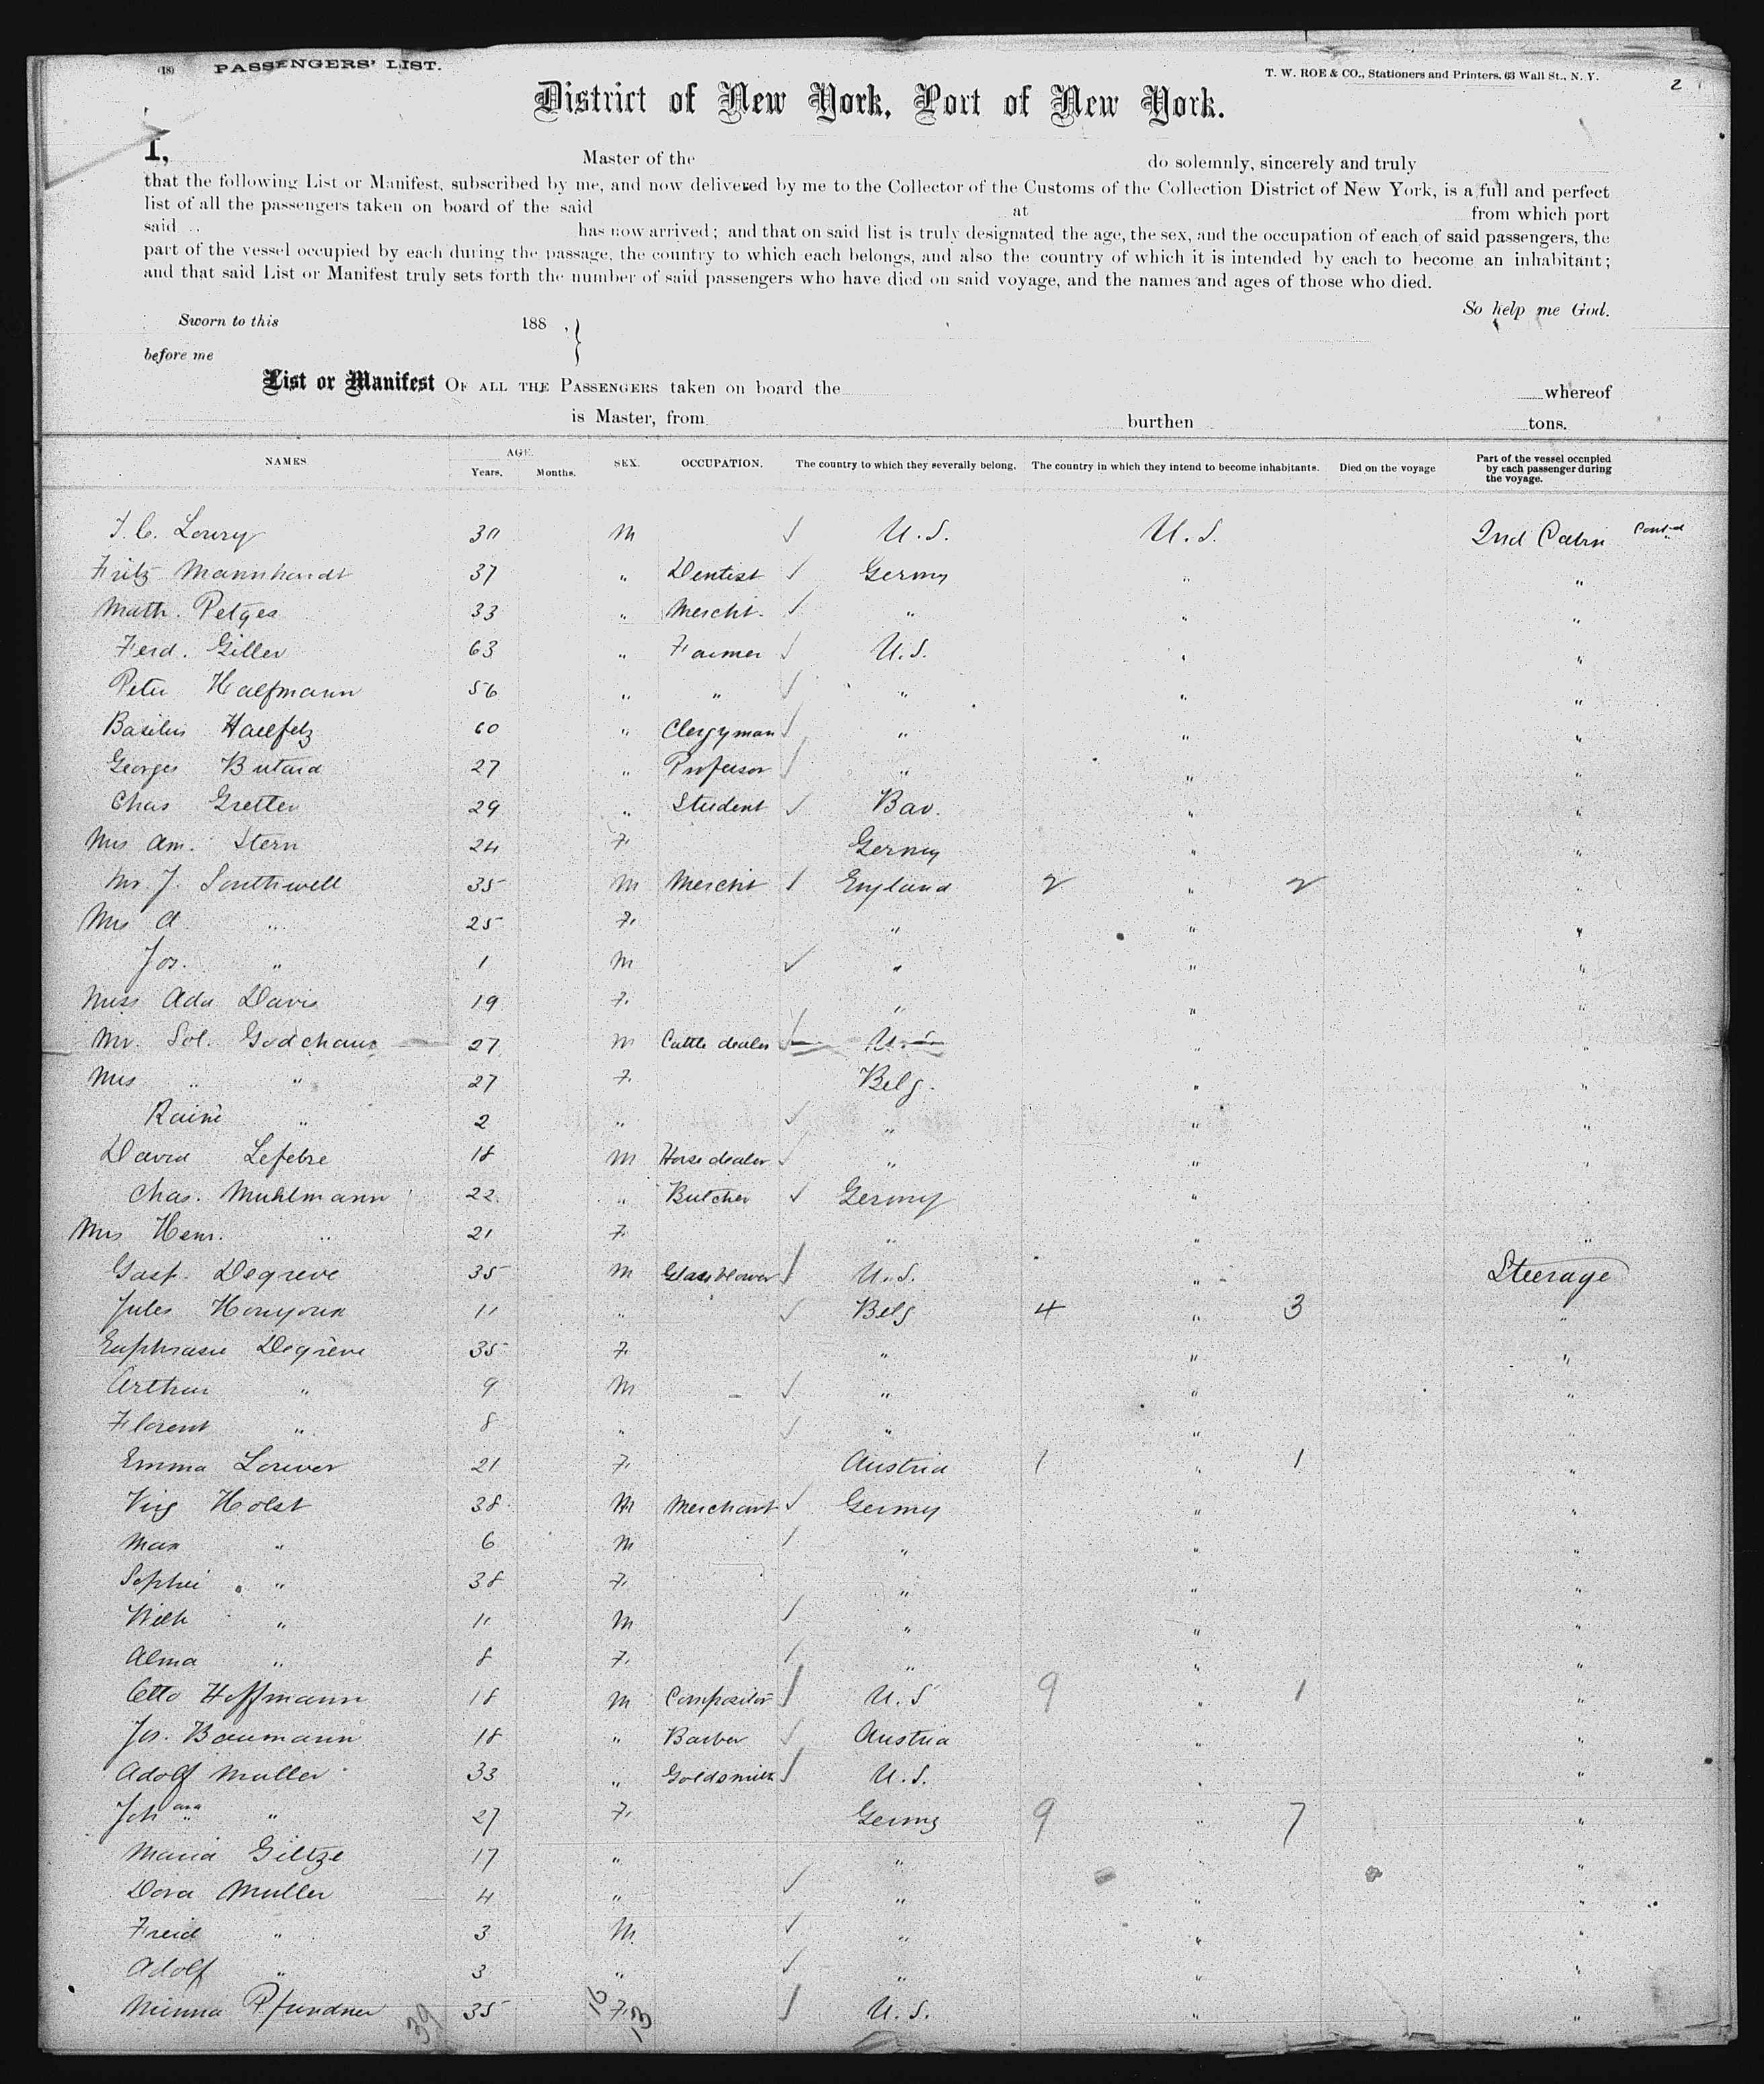 (18) PASSENGERS' LIST. T. W. ROE & CO., Stationers and Printers, 63 Wall St., N. Y. 2
District of New York, Port of New York.
I, Master of the do solemnly, sincerely and truly
that the following List or Manifest, subscribed by me, and now delivered by me to the Collector of the Customs of the Collection District of New York, is a full and perfect
list of all the passengers taken on board of the said at from which port
said has now arrived; and that on said list is truly designated the age, the sex, and the occupation of each of said passengers, the
part of the vessel occupied by each during the passage, the country to which each belongs, and also the country of which it is intended by each to become an inhabitant;
and that said List or Manifest truly sets forth the number of said passengers who have died on said voyage, and the names and ages of those who died.
So help me God.
Sworn to this 188 , }
before me
List or Manifest OF ALL THE PASSENGERS taken on board the whereof
is Master, from burthen tons.
NAMES AGE. Years. Months. SEX. OCCUPATION. The country to which they severally belong. The country in which they intend to become inhabitants. Died on the voyage Part of the vessel occupied by each passenger during the voyage.
J. C. Lowry 30 M ✓ U.S. U.S. 2nd Cabin Cont-d
Fritz Mannhardt 37 " Dentist ✓ Germy " "
Math. Petges 33 " Mercht. ✓ " " "
Ferd. Giller 63 " Farmer ✓ U.S. " "
Peter Halfmann 56 " " ✓ " " "
Basilius Haelfelz 60 " Clergyman ✓ " " "
Georges Butard 27 " Professor ✓ " " "
Chas Gretter 29 " Student ✓ Bav. " "
Mrs Am. Stern 24 F. Germy " "
Mr. J. Southwell 35 M Mercht ✓ England 2 " 2 "
Mrs A. " 25 F. " " "
Jos. " 1 M ✓ " " "
Miss Ada Davis 19 F. " " "
Mr. Sol. Godchaux 27 M Cattle dealer ✓ U.S. " "
Mrs " " 27 F. Belg. " "
Raine " 2 " ✓ " " "
David Lefebre 18 M Horse dealer ✓ " " "
Chas. Muhlmann 22 " Butcher ✓ Germy " "
Mrs Henr. " 21 F. " " "
Gasp. Degreve 35 M Glassblower ✓ U.S. " Steerage
Jules Houyoux 11 " ✓ Belg 4 " 3 "
Euphrasie Degrève 35 F. " " "
Arthur " 9 M ✓ " " "
Florent " 8 " ✓ " " "
Emma Lorwer 21 F. Austria 1 " 1 "
Virg Holst 38 M Merchant ✓ Germy " "
Max " 6 M ✓ " " "
Sophie " 38 F. " " "
Wilh " 11 M ✓ " " "
Alma " 8 F. ✓ " " "
Otto Hoffmann 18 M Compositor ✓ U.S 9 " 1 "
Jos. Baumann 18 " Barber ✓ Austria " "
Adolf Muller 33 " Goldsmith ✓ U.S. " "
Johana " 27 F. Germy 9 " 7 "
Maria Giltze 17 " " " "
Dora Muller 4 " ✓ " " "
Freid " 3 M. ✓ " " "
Adolf " 3 " ✓ " " "
Minna Pfundner 35 F. ✓ U.S. " "
39 16 13